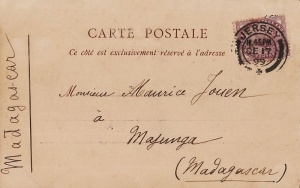 CARTE POSTALE
Ce côté est exclusivement réservé à l'adresse
JERSEY
99
Monsieur Maurice Jouen
à
Majunga
(Madagascar)
Madagascar